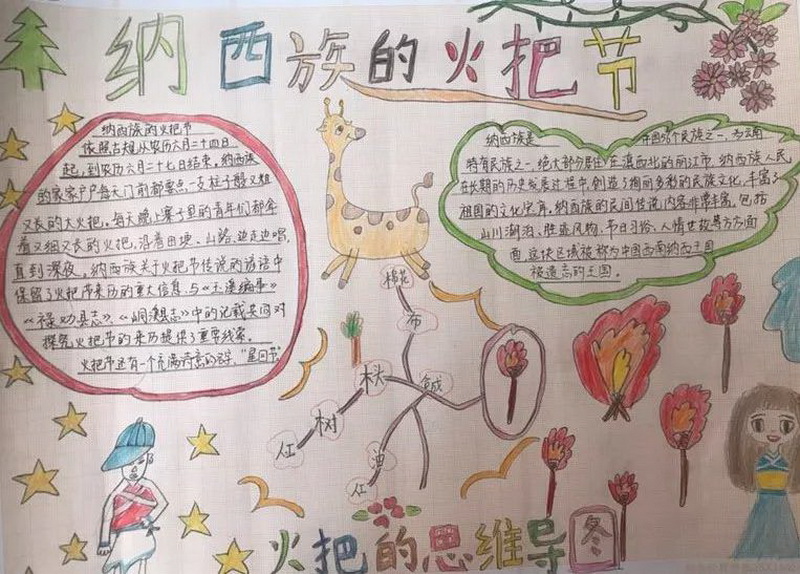 纳西族的火把节
纳西族的火把节
依照古规从农历六月二十四日
起,到农历六月二十七日结束,纳西族
的家家户户每天门前都要点一支柱子般又粗
又长的大火把。每天晚上寨子里的青年们都拿
着又细又长的火把,沿着田埂、山路,边走边唱,
直到深夜。纳西族关于火把节传说的
保留了火把节来历的重大信息,与
《禄劝县志》、中的记载共同对
探究火把节的来历提供了重要线索。
火把节还有一个充满诗意的名字,"星回节"
纳西族是 中国56个民族之一,为云南
特有民族之一,绝大部分居住在滇西北的丽江市,纳西族人民
在长期的历史发展过程中,创造了绚丽多彩的民族文化,丰富了
祖国的文化宝库,纳西族的民间传说,内容非常丰富,包括
山川湖泊、胜迹风物、节日习俗、人情世故等方方面
面,这块区域被称为中国西南纳西王国
被遗忘的王国。
棉花
布
木头
合成
树
仁
油
仁
火把的思维导图